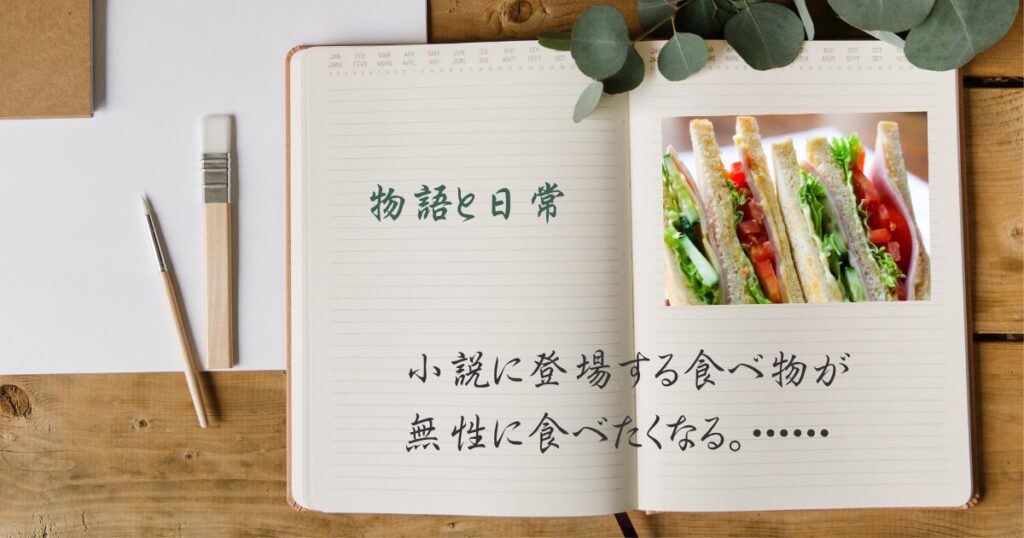 物語と日常
小説に登場する食べ物が
無性に食べたくなる。……